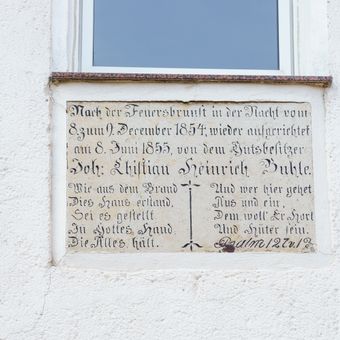 Nach der Feuersbrunst in der Nacht vom
8. zum 9. December 1854, wieder aufgerichtet
am 8. Juni 1855, von dem Gutsbesitzer
Joh. Christian Heinrich Buhle.
Wie aus dem Brand
Dies Haus erstand,
Sei es gestellt
In Gottes Hand
Die Alles hält.
Und wer hier gehet
Aus und ein,
Dem woll Er Hort
Und Hüter sein.
Psalm 127 v 1